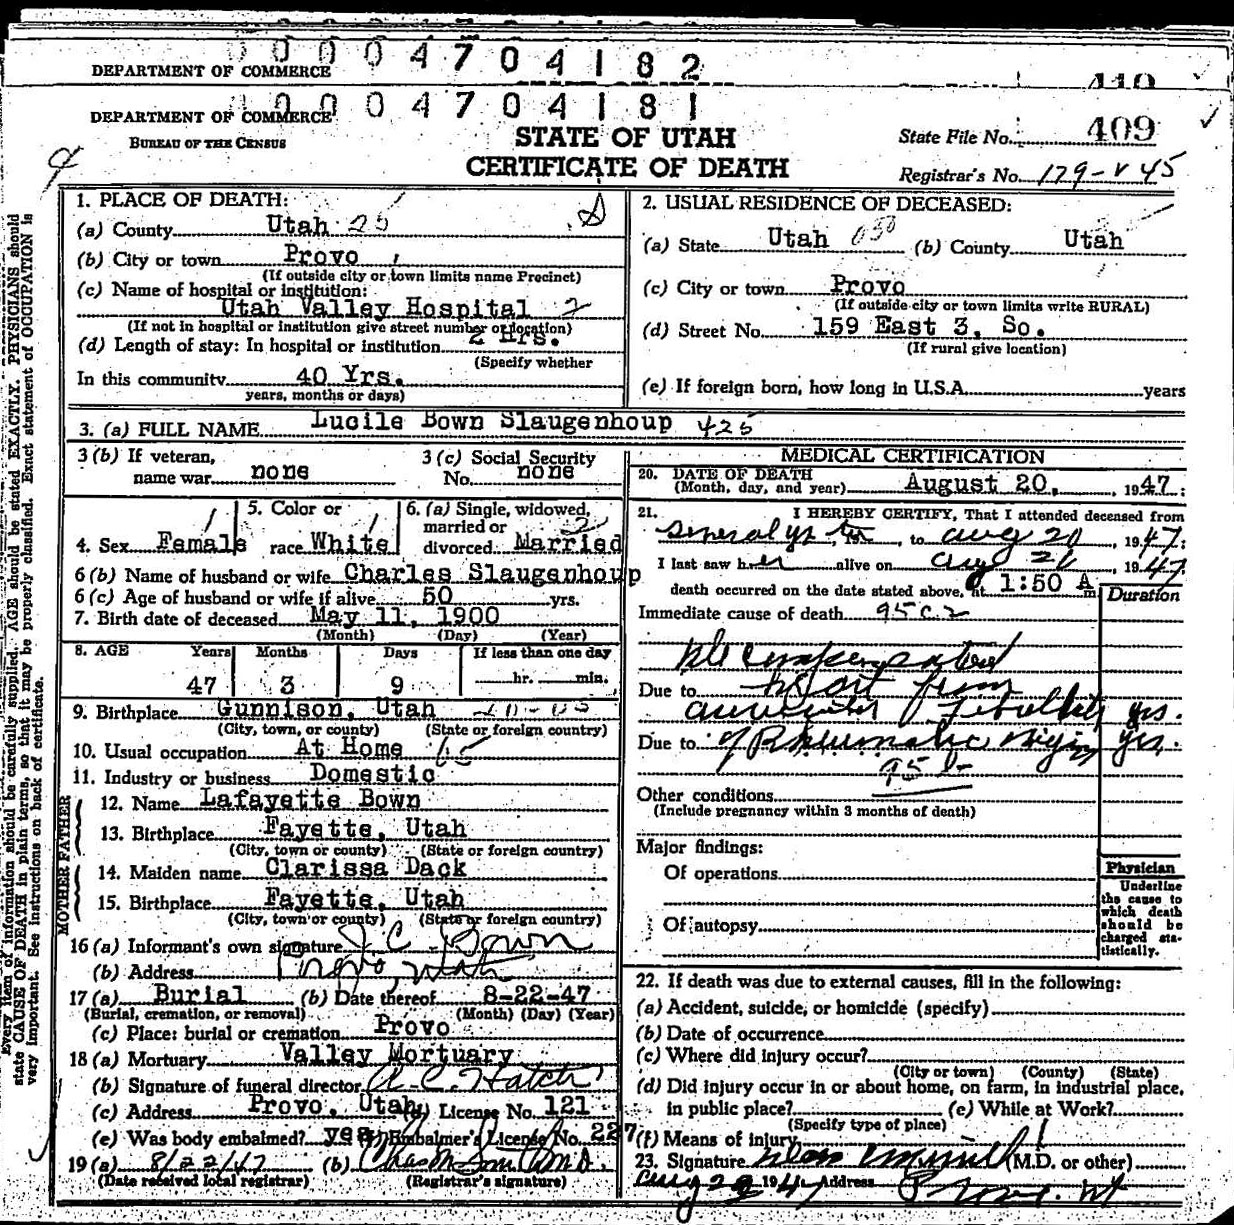 00004704182
DEPARTMENT OF COMMERCE
410
00004704181
DEPARTMENT OF COMMERCE
BUREAU OF THE CENSUS
STATE OF UTAH
CERTIFICATE OF DEATH
State File No. 409
Registrar's No. 179-V 45
Every item of information should be carefully supplied. AGE should be stated EXACTLY. PHYSICIANS should
state CAUSE OF DEATH in plain terms, so that it may be properly classified. Exact statement of OCCUPATION is
very important. See instructions on back of certificate.
1. PLACE OF DEATH:
(a) County Utah 25
(b) City or town Provo
(If outside city or town limits name Precinct)
(c) Name of hospital or institution:
Utah Valley Hospital 2
(If not in hospital or institution give street number or location)
(d) Length of stay: In hospital or institution 2 Hrs.
(Specify whether
In this community 40 Yrs.
years, months or days)
2. USUAL RESIDENCE OF DECEASED:
(a) State Utah 050 (b) County Utah
(c) City or town Provo
(If outside city or town limits write RURAL)
(d) Street No. 159 East 3, So.
(If rural give location)
(e) If foreign born, how long in U.S.A. years
3. (a) FULL NAME Lucile Bown Slaugenhoup 425
3 (b) If veteran, name war none
3 (c) Social Security No. none
4. Sex Female
5. Color or race White
6. (a) Single, widowed, married or divorced Married
6 (b) Name of husband or wife Charles Slaugenhoup
6 (c) Age of husband or wife if alive 50 yrs.
7. Birth date of deceased May 11, 1900
(Month) (Day) (Year)
8. AGE Years Months Days If less than one day
47 3 9 hr. min.
9. Birthplace Gunnison, Utah
(City, town, or county) (State or foreign country)
10. Usual occupation At Home
11. Industry or business Domestic
FATHER
12. Name Lafayette Bown
13. Birthplace Fayette, Utah
(City, town or county) (State or foreign country)
MOTHER
14. Maiden name Clarissa Dack
15. Birthplace Fayette, Utah
(City, town or county) (State or foreign country)
16 (a) Informant's own signature J C Bown
(b) Address Provo, Utah
17 (a) Burial (b) Date thereof 8-22-47
(Burial, cremation, or removal) (Month) (Day) (Year)
(c) Place: burial or cremation Provo
18 (a) Mortuary Valley Mortuary
(b) Signature of funeral director A. C. Hatch
(c) Address Provo, Utah (d) License No. 121
(e) Was body embalmed? yes (f) Embalmer's License No. 227
19 (a) 8/22/47 (b) Chas M Smith M.D.
(Date received local registrar) (Registrar's signature)
MEDICAL CERTIFICATION
20. DATE OF DEATH
(Month, day, and year) August 20, 1947
21. I HEREBY CERTIFY, That I attended deceased from
several yrs to Aug 20, 1947;
I last saw her alive on Aug 20, 1947
death occurred on the date stated above, at 1:50 A m
Duration
Immediate cause of death 95c2
Decompensated
Due to heart from
auricular fibrillation yrs.
Due to of Rheumatic origin yrs.
95 b
Other conditions
(Include pregnancy within 3 months of death)
Major findings:
Of operations
Of autopsy
Physician
Underline
the cause to
which death
should be
charged sta-
tistically.
22. If death was due to external causes, fill in the following:
(a) Accident, suicide, or homicide (specify)
(b) Date of occurrence
(c) Where did injury occur?
(City or town) (County) (State)
(d) Did injury occur in or about home, on farm, in industrial place,
in public place? (e) While at Work?
(Specify type of place)
(f) Means of injury
23. Signature (M.D. or other)
Aug 1947 Address Provo, Ut